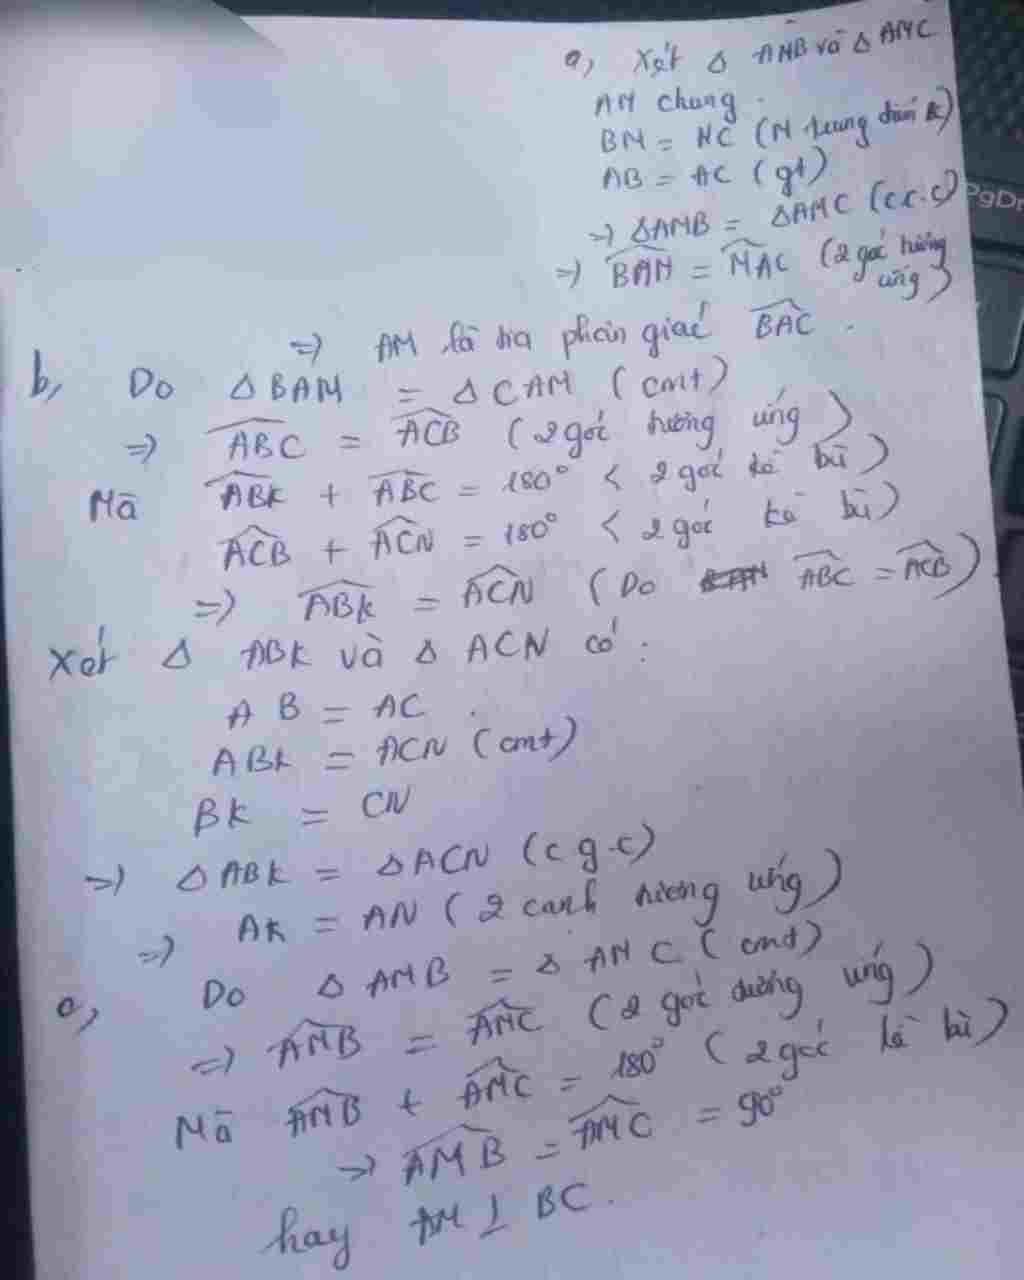 a, Xét Δ AMB và Δ AMC
AM chung.
BM = MC (M trung điểm BC)
AB = AC (gt)
=> ΔAMB = ΔAMC (c.c.c)
=> BAM = MAC (2 góc tương
ứng)
=> AM là tia phân giác BAC.
b, Do ΔBAM = ΔCAM (cmt)
=> ABC = ACB (2 góc tương ứng)
Mà ABK + ABC = 180° < 2 góc kề bù)
ACB + ACN = 180° < 2 góc kề bù)
=> ABK = ACN (Do ABC = ACB)
Xét Δ ABK và Δ ACN có:
AB = AC.
ABK = ACN (cmt)
BK = CN
=> ΔABK = ΔACN (c g.c)
=> AK = AN (2 canh tương ứng)
c, Do ΔAMB = ΔAMC (cmt)
=> AMB = AMC (2 góc tương ứng)
Mà AMB + AMC = 180° (2 góc kề bù)
=> AMB = AMC = 90°
hay AM ⊥ BC.
PgDn